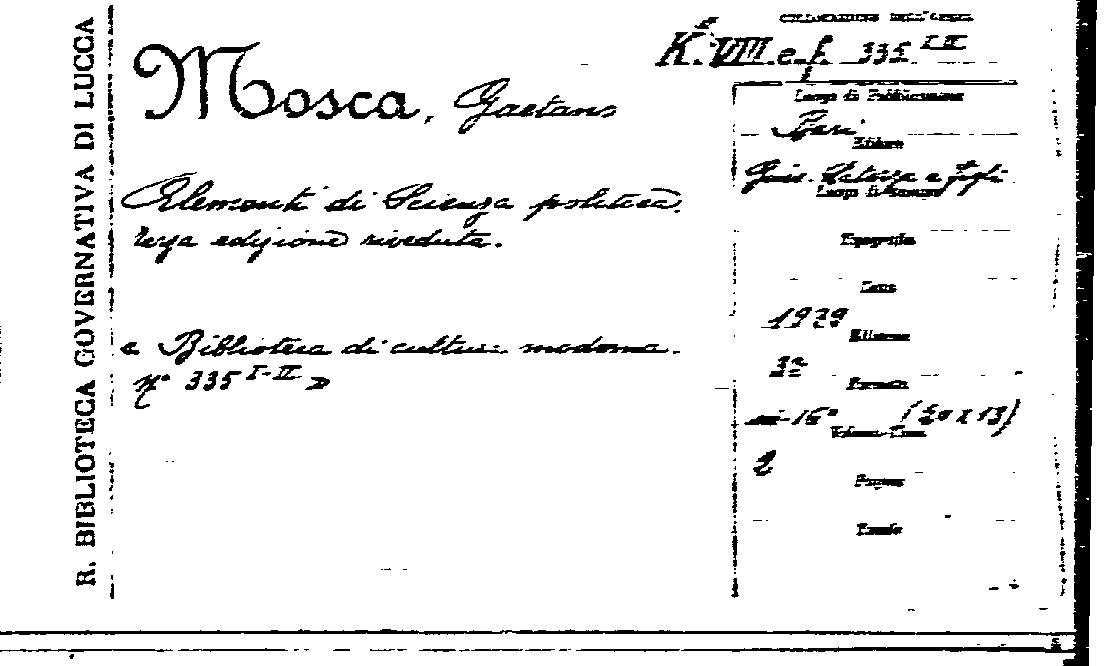 R. BIBLIOTECA GOVERNATIVA DI LUCCA
COLLOCAZIONE DELL'OPERA
K. VIII e f. 335 I-II
Mosca, Gaetano
Elementi di Scienza politica.
terza edizione riveduta.
« Biblioteca di cultura moderna.
N° 335 I-II »
Luogo di Pubblicazione
Bari
Editore
Gius. Laterza e figli
Luogo di stampa
Tipografia
Anno
1939
Edizione
3ª
Formato
in-16° (20 x 13)
2
Pagine